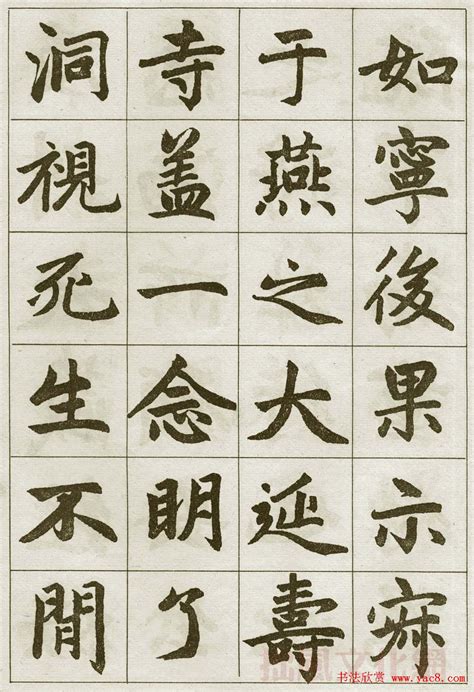 如寧後果示寂
于燕之大延壽
寺盖一念眀了
洞視死生不閒
拙風文化網
书法欣赏
www.yac8.com